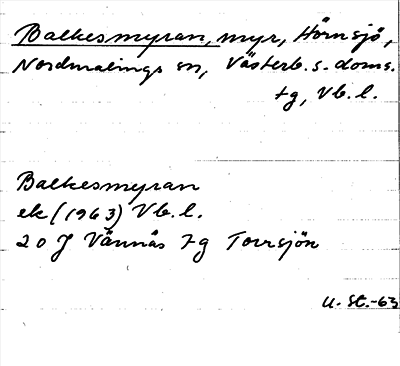 Balkesmyran, myr, Hörnsjö,
Nordmalings sn, Västerb. s. doms.
tg, Vb. l.
Balkesmyran
ek (1963) Vb. l.
20 J Vännäs 7g Torrsjön
U. St. -63